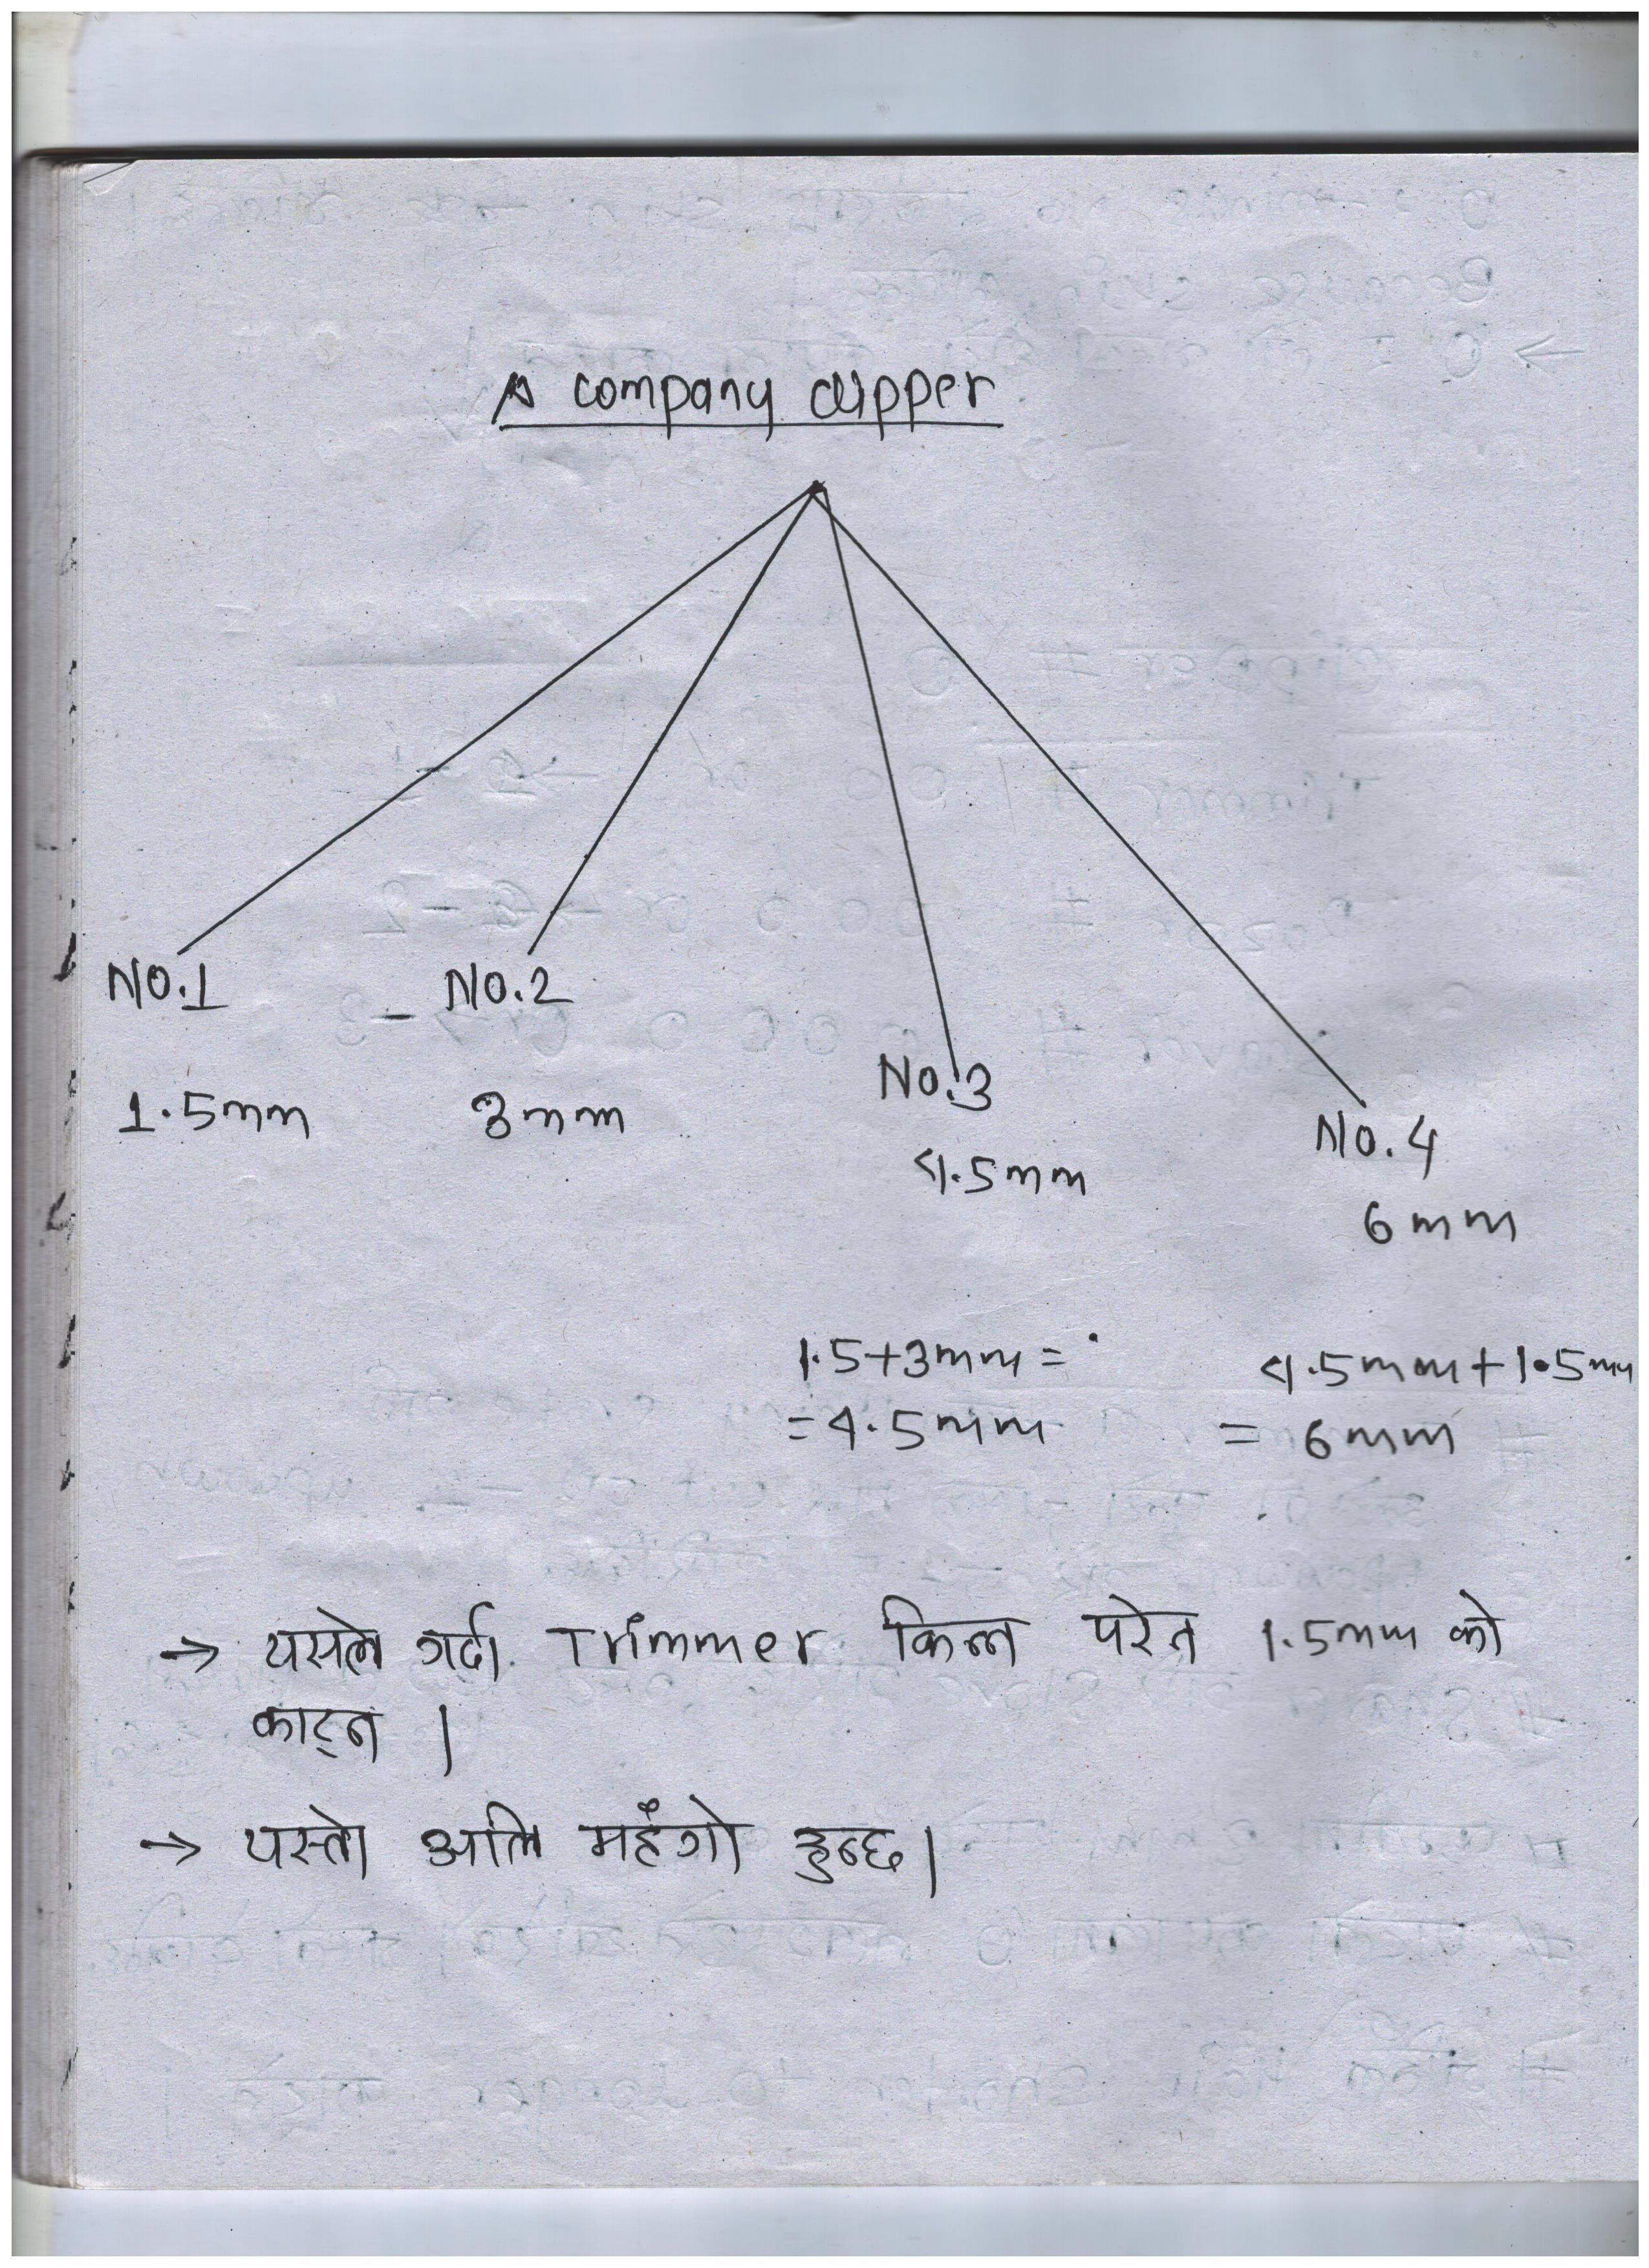 A company clipper
NO.1
NO.2
1.5mm
3mm
No.3
4.5mm
No.4
6mm
1.5+3mm=
=4.5mm
4.5mm+1.5mm
= 6mm
→ यसले गर्दा Trimmer किन्न परेन 1.5mm को
काट्न |
→ यस्तो अलि महँगो हुन्छ |